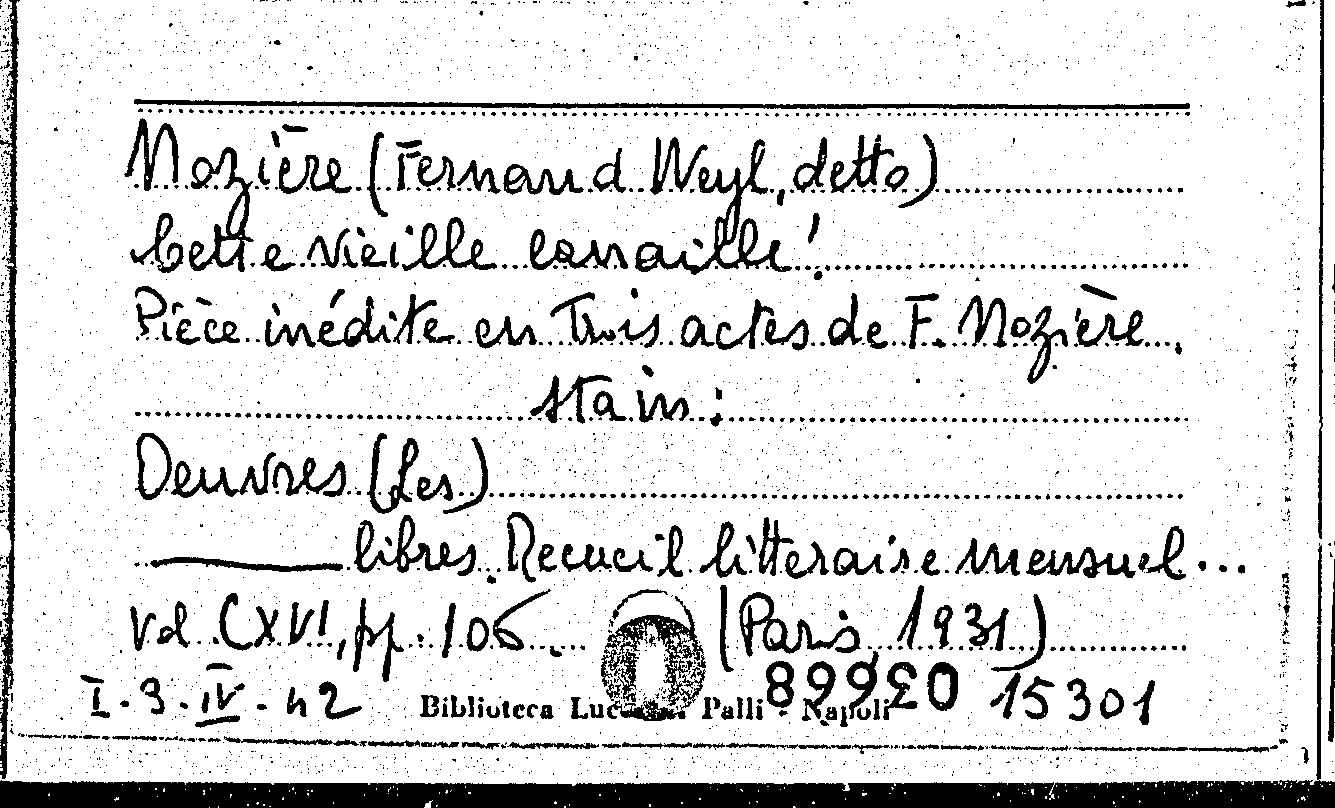 Nozière (Fernand Weyl, detto)
Cette vieille canaille!
Pièce inédite en trois actes de F. Nozière.
Sta in:
Oeuvres (Les)
——— libres. Recueil litteraire mensuel...
Vol. CXVI, pp. 105... (Paris, 1931)
I. 3. IV. 42 Biblioteca Palli - Napoli 15301